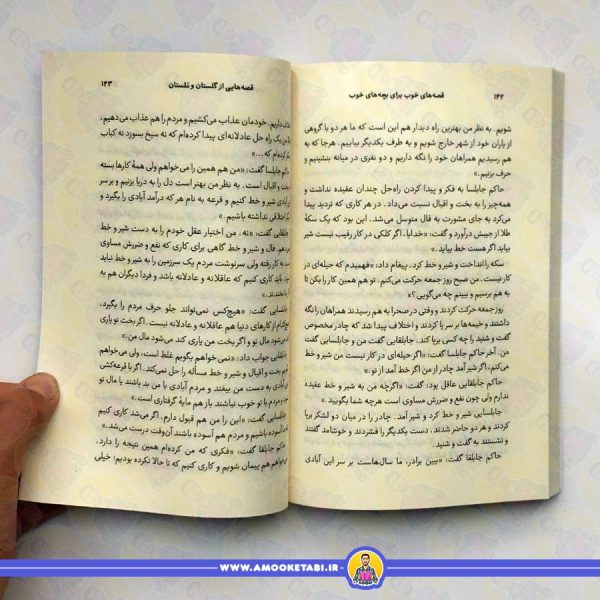 ۱۴۲ قصه‌های خوب برای بچه‌های خوب
شویم. به نظر من بهترین راه دیدار هم این است که ما هر دو با گروهی
از یاران خود از شهر خارج شویم و به طرف یکدیگر بیاییم. هرجا که به
هم رسیدیم همراهان خود را نگه داریم و دو نفری در میانه بنشینیم و
حرف بزنیم.»
حاکم جابلسا که به فکر و پیدا کردن راه‌حل چندان عقیده نداشت و
همه‌چیز را به بخت و اقبال نسبت می‌داد. در هر کاری که تردید پیدا
می‌کرد به جای مشورت به فال متوسل می‌شد. این بود که یک سکهٔ
طلا از جیبش درآورد و گفت: «خدایا، اگر کلکی در کار رقیب نیست شیر
بیاید اگر هست خط بیاید.»
سکه را انداخت و شیر و خط کرد. پیغام داد: «فهمیدم که حیله‌ای در
کار نیست. من صبح روز جمعه حرکت می‌کنم، تو هم همین کار را بکن تا
به هم برسیم و ببینم چه می‌گویی؟»
روز جمعه حرکت کردند و وقتی در صحرا به هم رسیدند همراهان را نگه
داشتند و خیمه‌ها بر سر پا کردند و اختلاف پیدا شد که چادر مخصوص
گفت و شنید را چه کسی برپا کند. جابلقایی گفت من، جابلسایی گفت
من. آخر حاکم جابلسا گفت: «اگر حیله‌ای در کار نیست من شیر و خط
می‌کنم، اگر شیر آمد چادر از من اگر خط آمد از تو.»
حاکم جابلقایی عاقل بود؛ گفت: «اگرچه من به شیر و خط عقیده
ندارم ولی چون نفع و ضررش مساوی است هرچه شما بگویید.»
جابلسایی شیر و خط کرد و شیر آمد. چادر را در میان دو لشکر برپا
کردند و هر دو حاضر شدند، دست یکدیگر را فشردند و خوشامد گفتند
و نشستند به گفت و شنید.
حاکم جابلقا گفت: «ببین برادر، ما سال‌هاست بر سر این آبادی
قصه‌هایی از گلستان و ملستان ۱۴۳
داریم. خودمان عذاب می‌کشیم و مردم را هم عذاب می‌دهیم،
من یک راه حل عادلانه‌ای پیدا کرده‌ام که نه سیخ بسوزد نه کباب
کرده‌ام که...»
حاکم جابلسا گفت: «من هم همین را می‌خواهم ولی همهٔ کارها بسته
به بخت و اقبال است. به نظر من بهتر است دل به دریا بزنیم و بر سر
آبادی شیر و خط کنیم و قرعه به نام هر که درآمد آبادی را بگیرد و
دیگر اختلافی نداشته باشیم.»
جابلقایی گفت: «نه، من اختیار عقل خودم را به دست شیر و خط
نمی‌دهم. فال و شیر و خط گاهی برای کاری که نفع و ضررش مساوی
است به کار رفته ولی سرنوشت مردم یک سرزمین را به شیر و خط نباید
کاری کنیم که عاقلانه و عادلانه باشد و فردا دیگران هم به
ما نخندند.»
جابلسایی گفت: «هیچ‌کس نمی‌تواند جلو حرف مردم را بگیرد.
هیچ‌کدام از کارهای دنیا هم عاقلانه و عادلانه نیست. اگر بخت تو یاری
می‌شود مال تو و اگر بخت من یاری کند می‌شود مال من.»
جابلقایی جواب داد: «نمی‌خواهم بگویم غلط است، ولی می‌خواهم
بخت و اقبال و شیر و خط مسأله را حل نمی‌کند. اگر با قرعه‌کشی
آبادی به دست من بیفتد و مردم آبادی با من بد باشند یا مال تو
و مردم با تو خوب نباشند باز هم مایهٔ گرفتاری است.»
جابلسایی گفت: «این را من هم قبول دارم. اگر می‌شد کاری کنیم
آسوده باشیم و مردم هم آسوده باشند آن‌وقت درست می‌شد.»
حاکم جابلقا گفت: «فکری که من کرده‌ام همین نتیجه را دارد،
هم پیمان شویم و کاری کنیم که تا حالا نکرده بودیم؛ خیلی
WWW.AMOOKETABI.IR